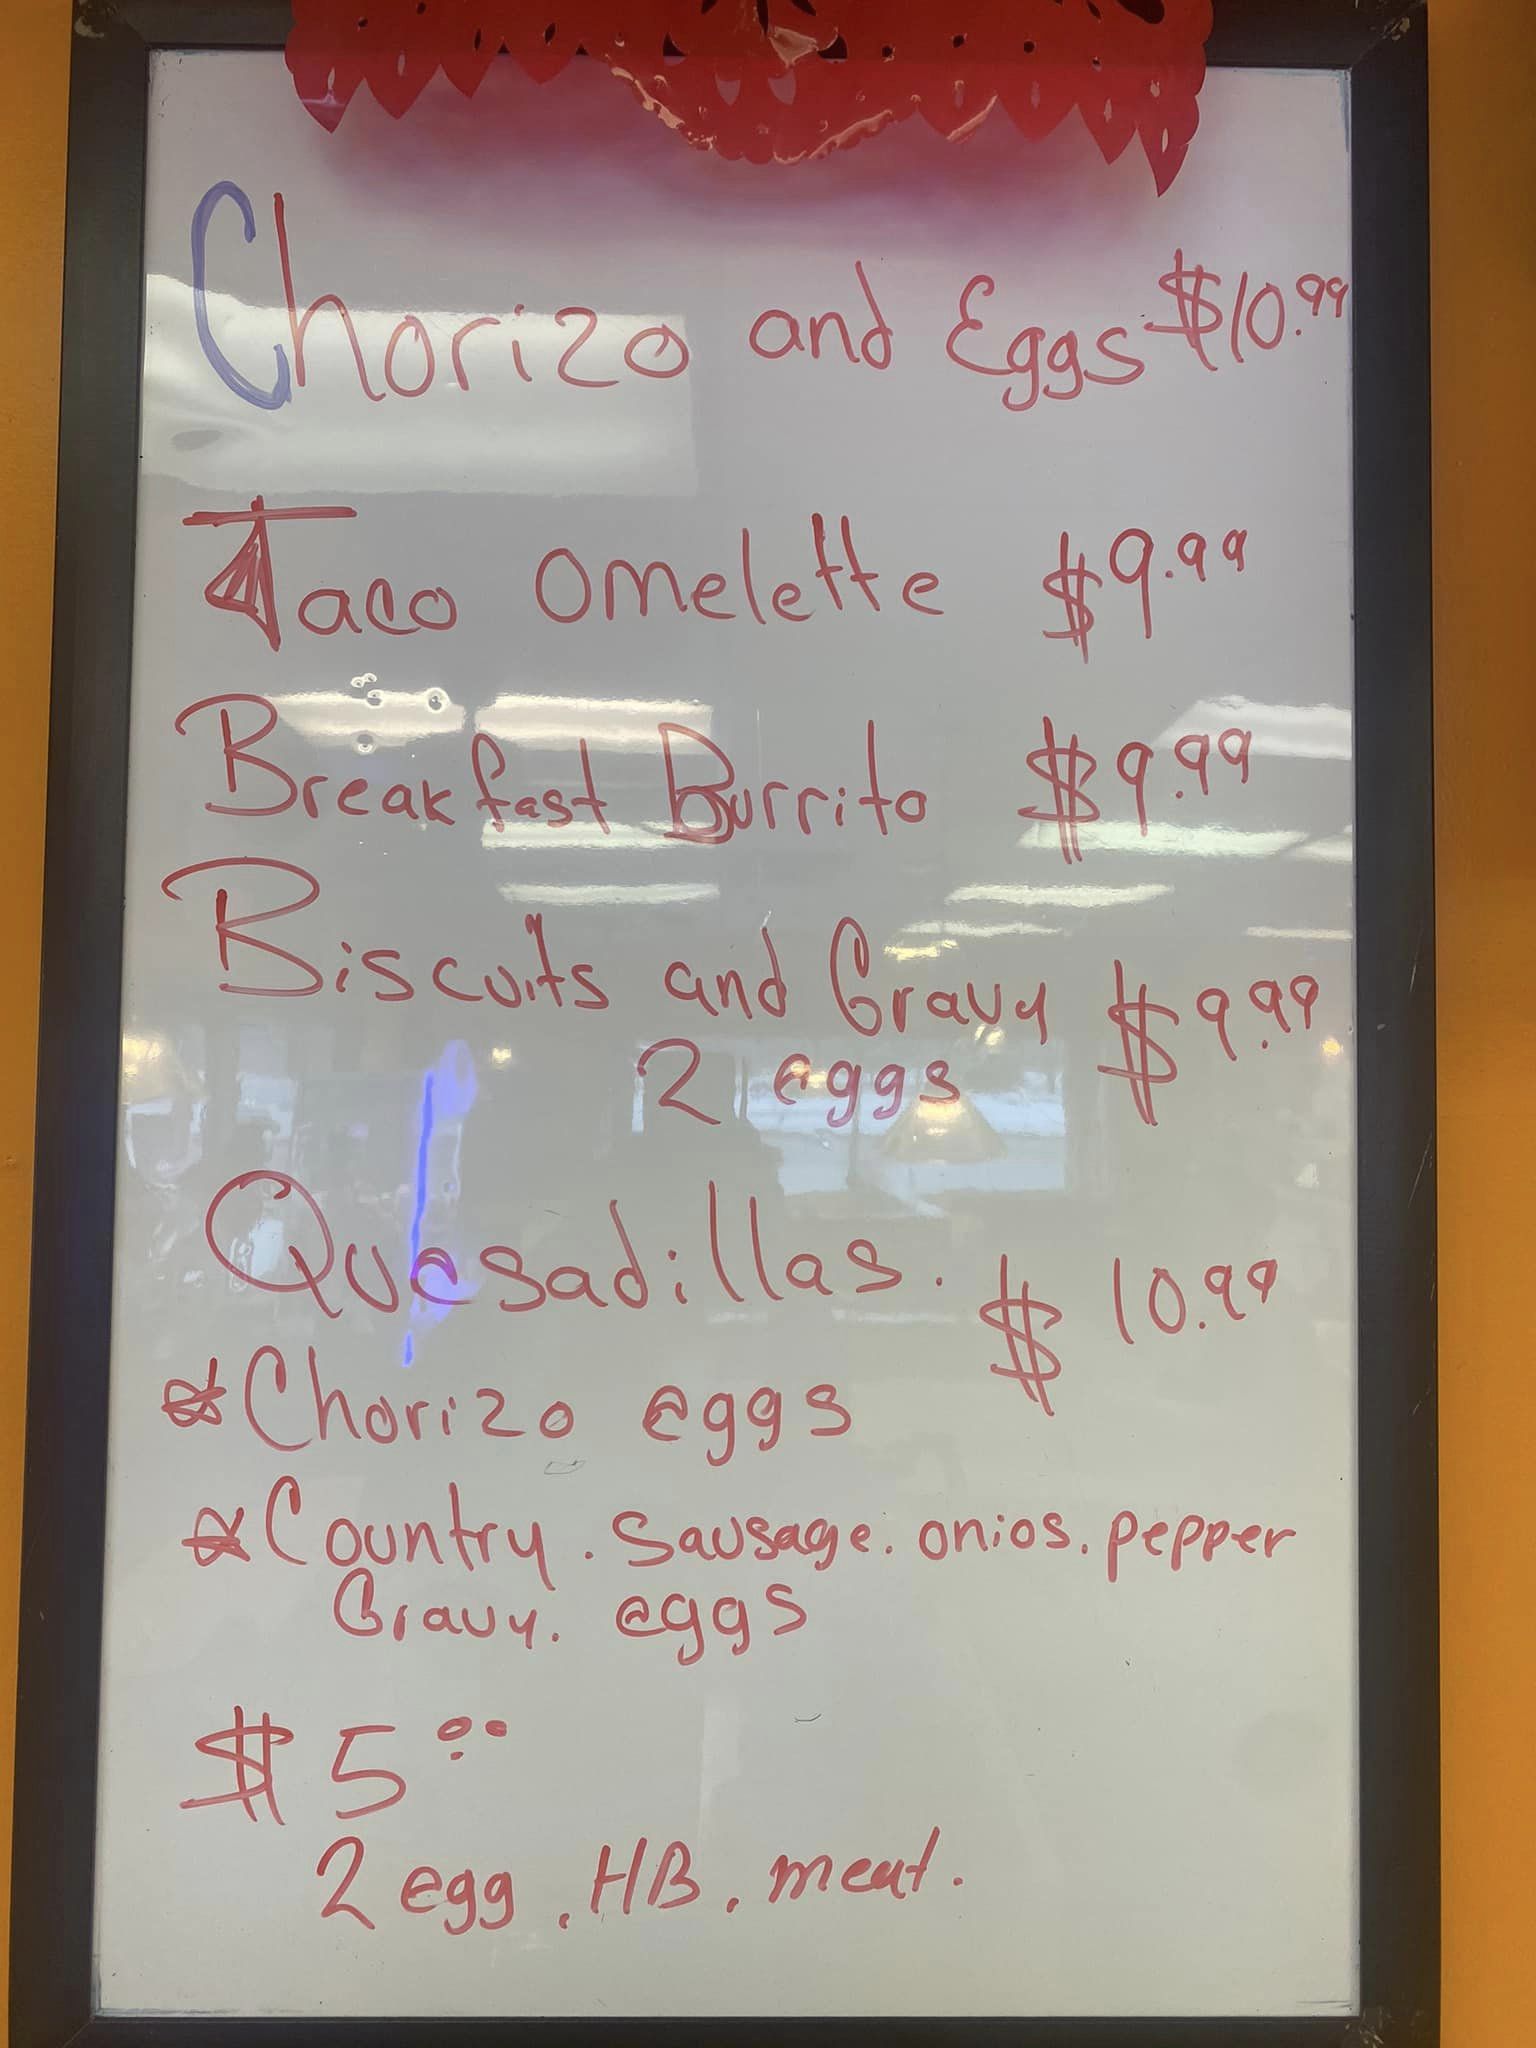 Chorizo and Eggs $10.99
Taco omelette $9.99
Breakfast Burrito $9.99
Biscuits and Gravy $9.99
2 eggs
Quesadillas. $10.99
*Chorizo eggs
*Country. Sausage. onios. pepper
Gravy. eggs
$5.00
2 egg. HB. meat.